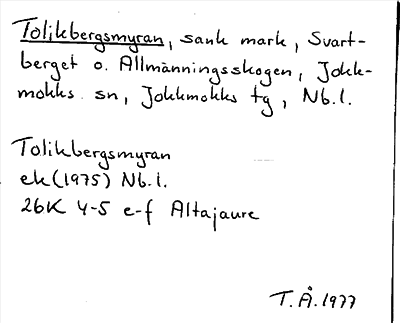 Tolikbergsmyran, sank mark, Svart-
berget o. Allmänningsskogen, Jokk-
mokks sn, Jokkmokks tg, Nb.l.
Tolikbergsmyran
ek(1975) Nb.l.
26K 4-5 e-f Altajaure
T.Å.1977